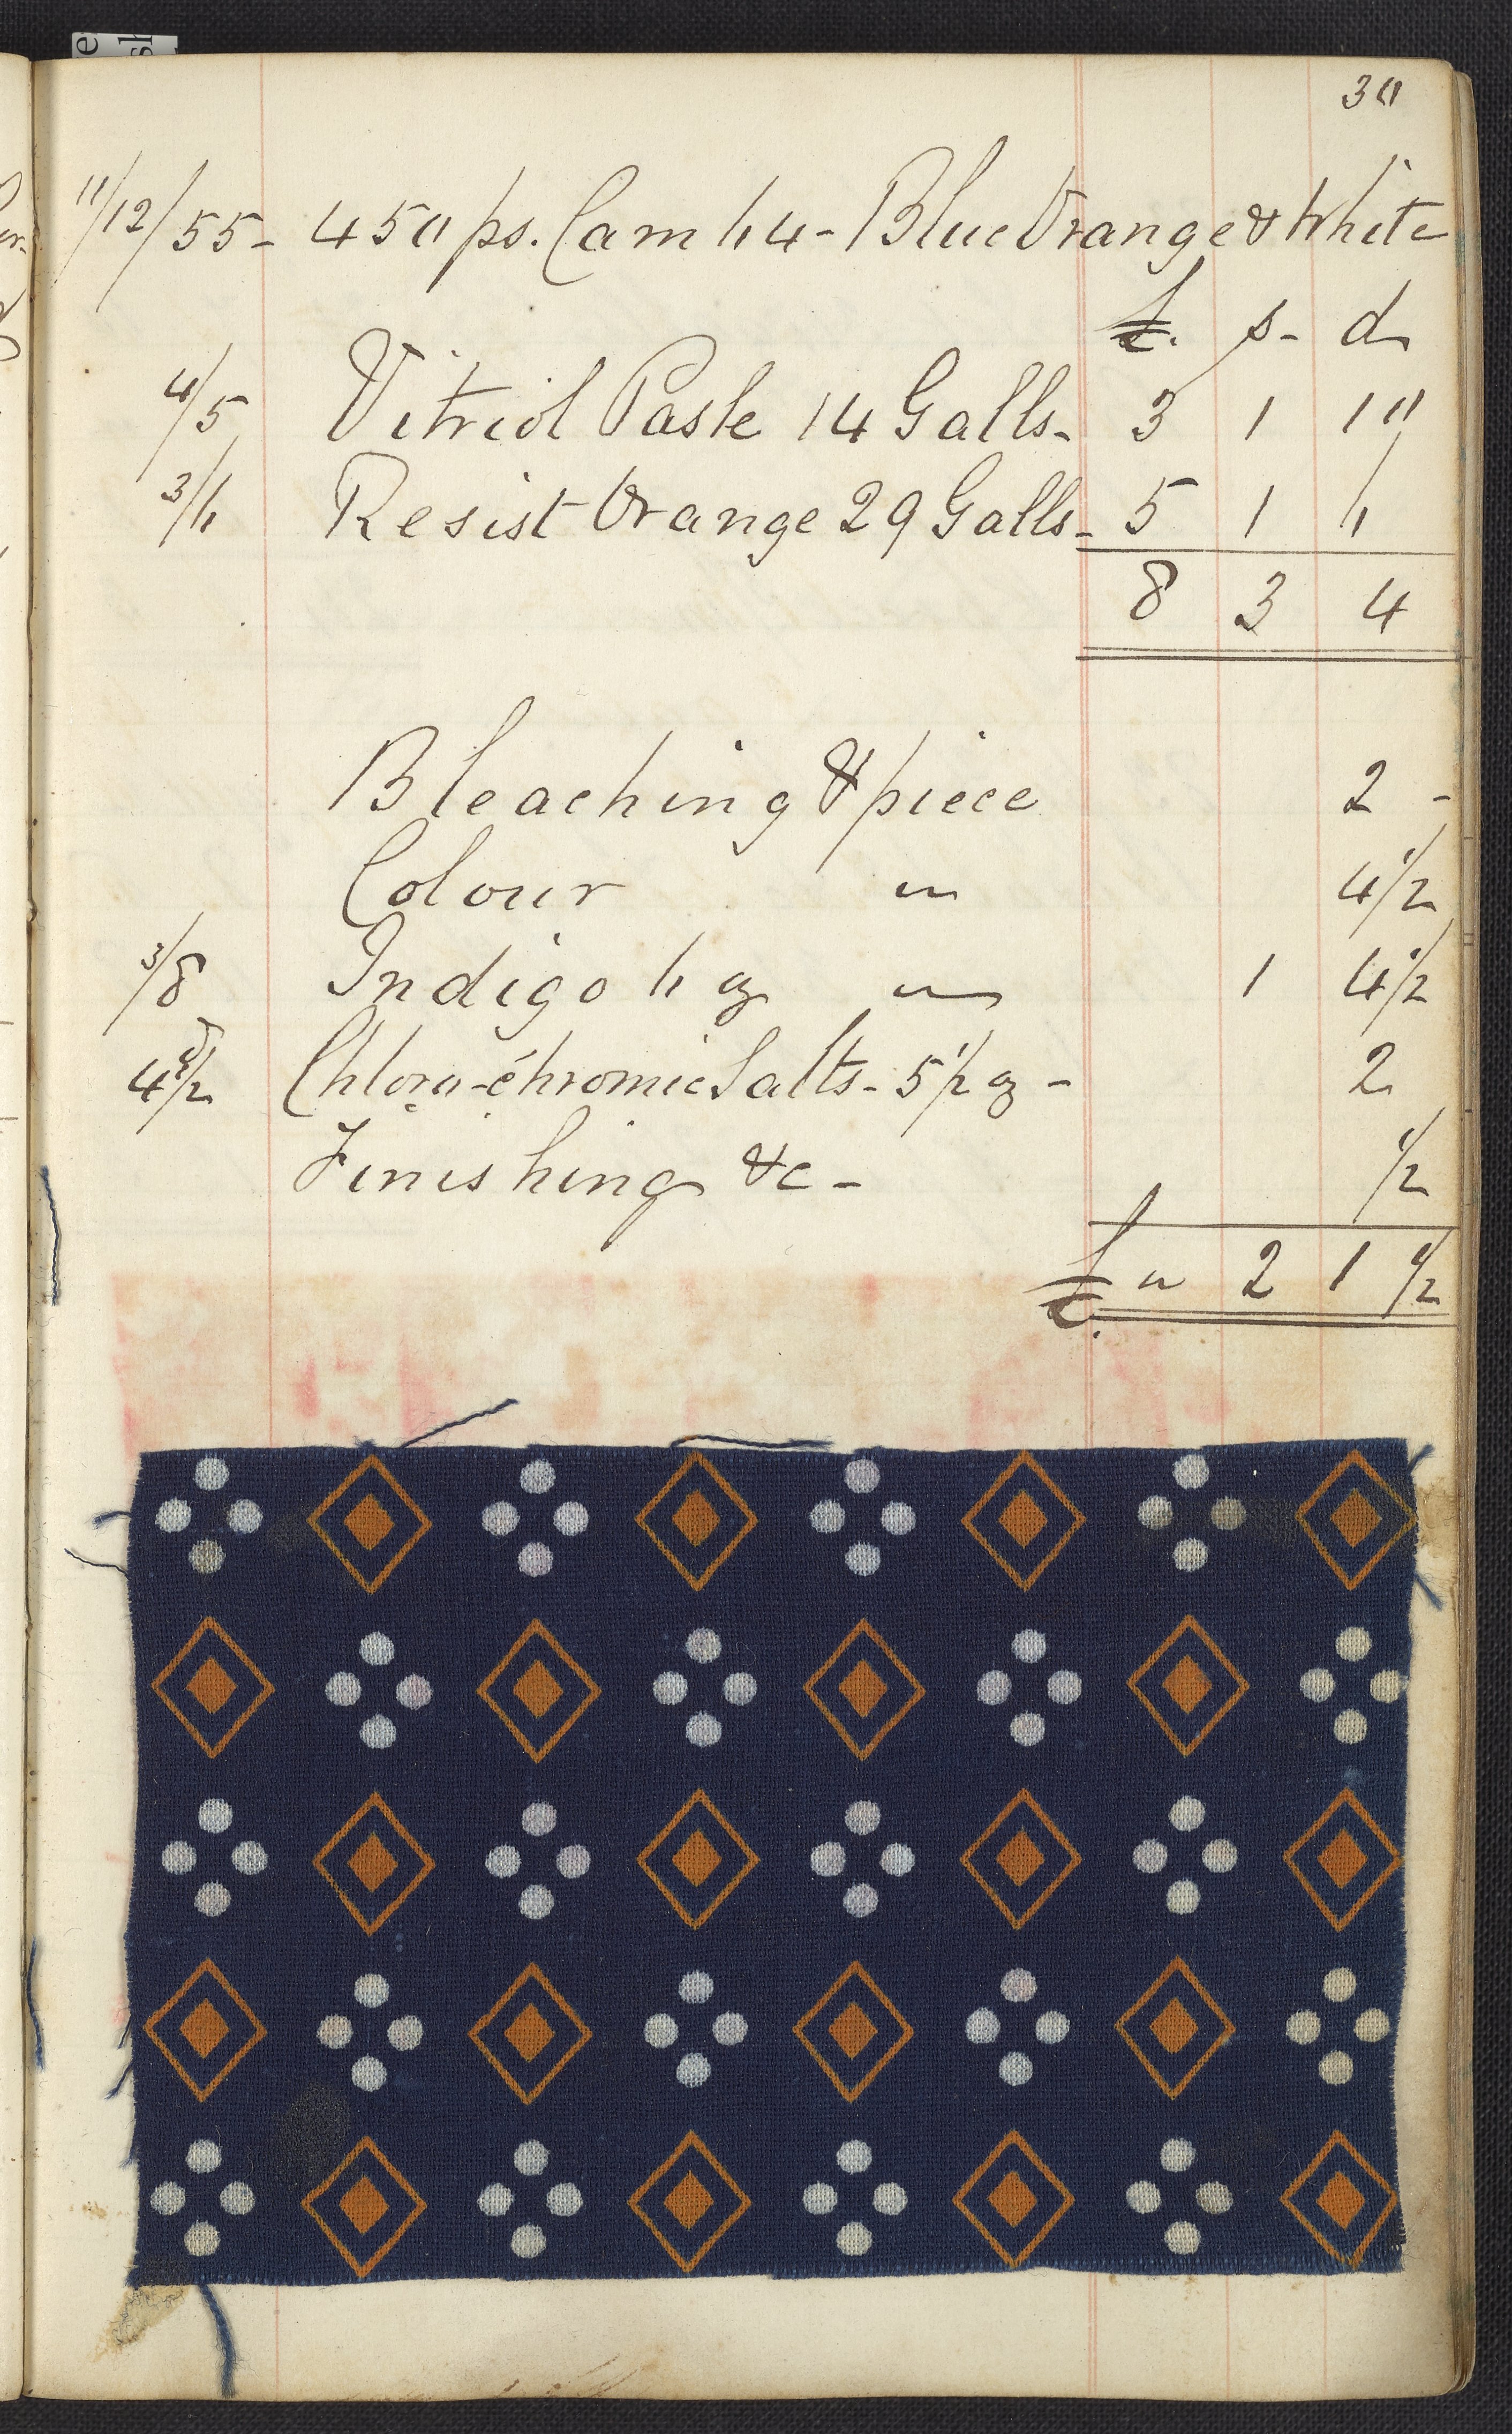 30
11/12/55 - 450 ps. Cam 64 - Blue Orange & White
£. s - d
4/5 Vitriol Paste 14 Galls - 3 1 10
3/6 Resist Orange 29 Galls - 5 1 6
8 3 4
Bleaching & piece 2 -
Colour " 4 1/2
3/8 Indigo 6 oz " 1 4 1/2
4 1/2 d Chloro-chromic Salts - 5 1/2 oz - 2
Finishing &c - 1/2
£ " 2 1 1/2